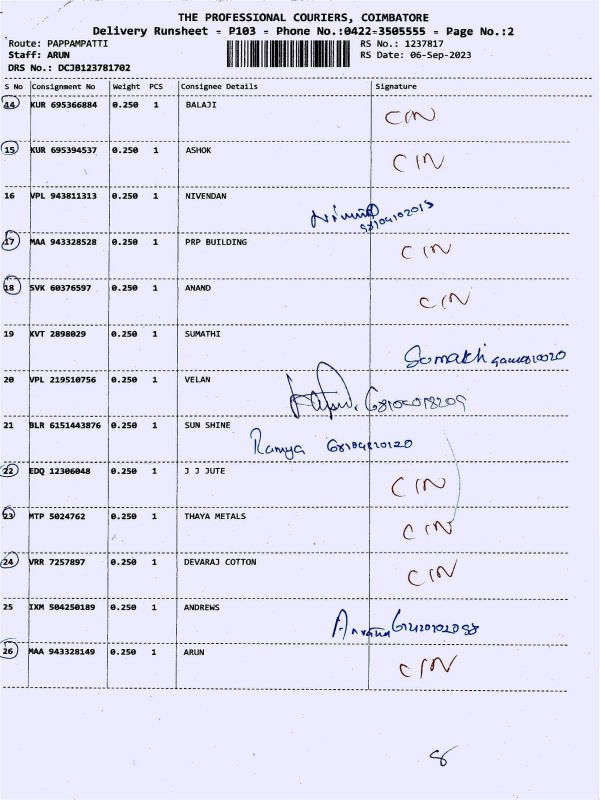 THE PROFESSIONAL COURIERS, COIMBATORE
Delivery Runsheet = P103 = Phone No.:0422-3505555 = Page No.:2
Route: PAPPAMPATTI RS No.: 1237817
Staff: ARUN RS Date: 06-Sep-2023
DRS No.: DCJB123781702
S No Consignment No Weight PCS Consignee Details Signature
14 KUR 695366884 0.250 1 BALAJI CIN
15 KUR 695394537 0.250 1 ASHOK CIN
16 VPL 943811313 0.250 1 NIVENDAN
17 MAA 943328528 0.250 1 PRP BUILDING CIN
18 SVK 60376597 0.250 1 ANAND CIN
19 KVT 2898029 0.250 1 SUMATHI
20 VPL 219510756 0.250 1 VELAN
21 BLR 6151443876 0.250 1 SUN SHINE
Ramya
22 EDQ 12306048 0.250 1 J J JUTE CIN
23 MTP 5024762 0.250 1 THAYA METALS CIN
24 VRR 7257897 0.250 1 DEVARAJ COTTON CIN
25 IXM 504250189 0.250 1 ANDREWS
26 MAA 943328149 0.250 1 ARUN CIN
8